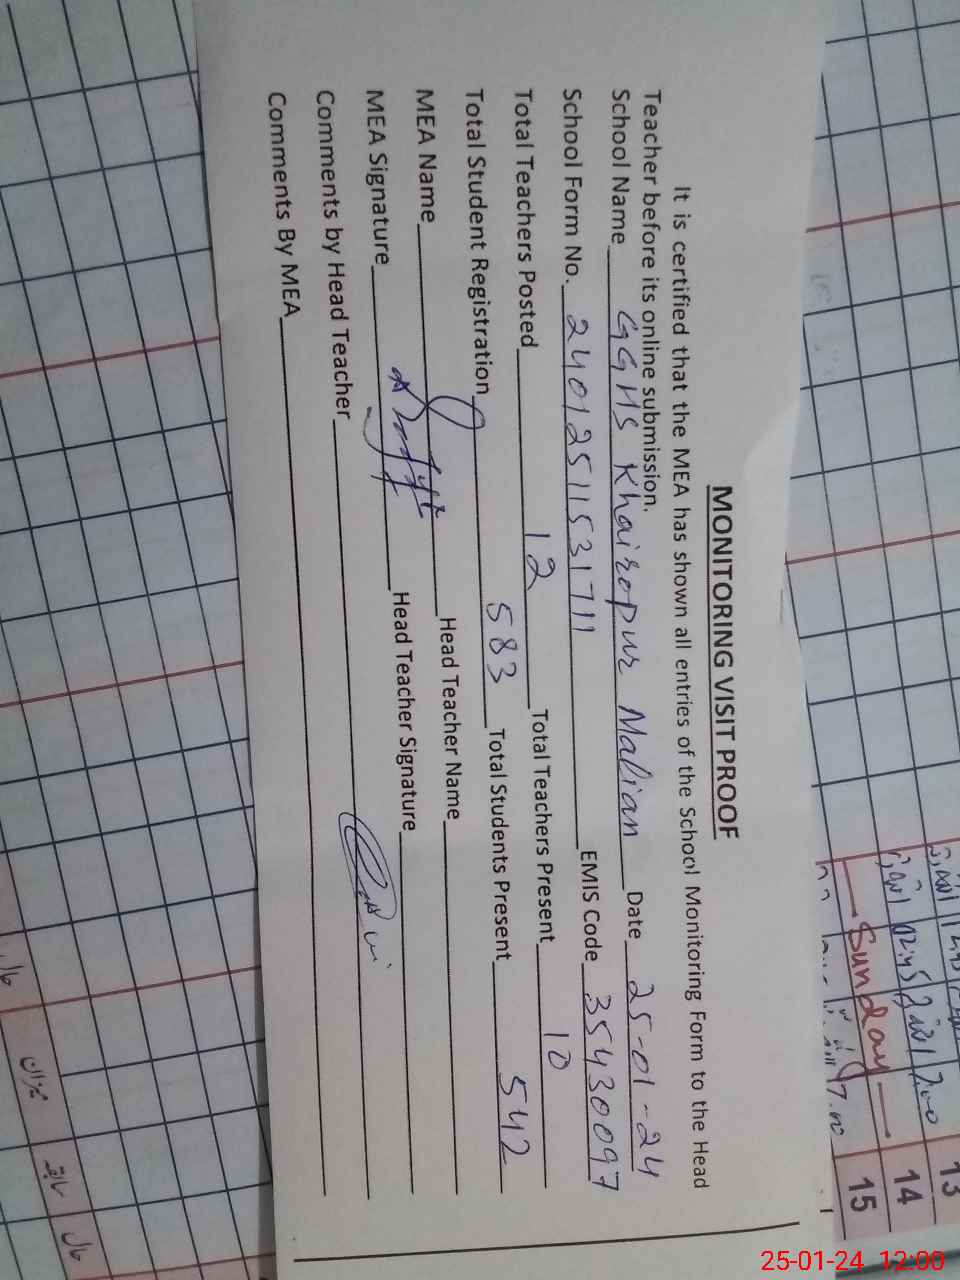 MONITORING VISIT PROOF
It is certified that the MEA has shown all entries of the School Monitoring Form to the Head
Teacher before its online submission.
School Name GGHS Khairopur Malian Date 25-01-24
School Form No. 24012511531711 EMIS Code 35430097
Total Teachers Posted 12 Total Teachers Present 10
Total Student Registration 583 Total Students Present 542
MEA Name Head Teacher Name
MEA Signature Head Teacher Signature
Comments by Head Teacher
Comments By MEA
13
14
Sunday 15
میزان
سابقہ
حال
25-01-24 12:00